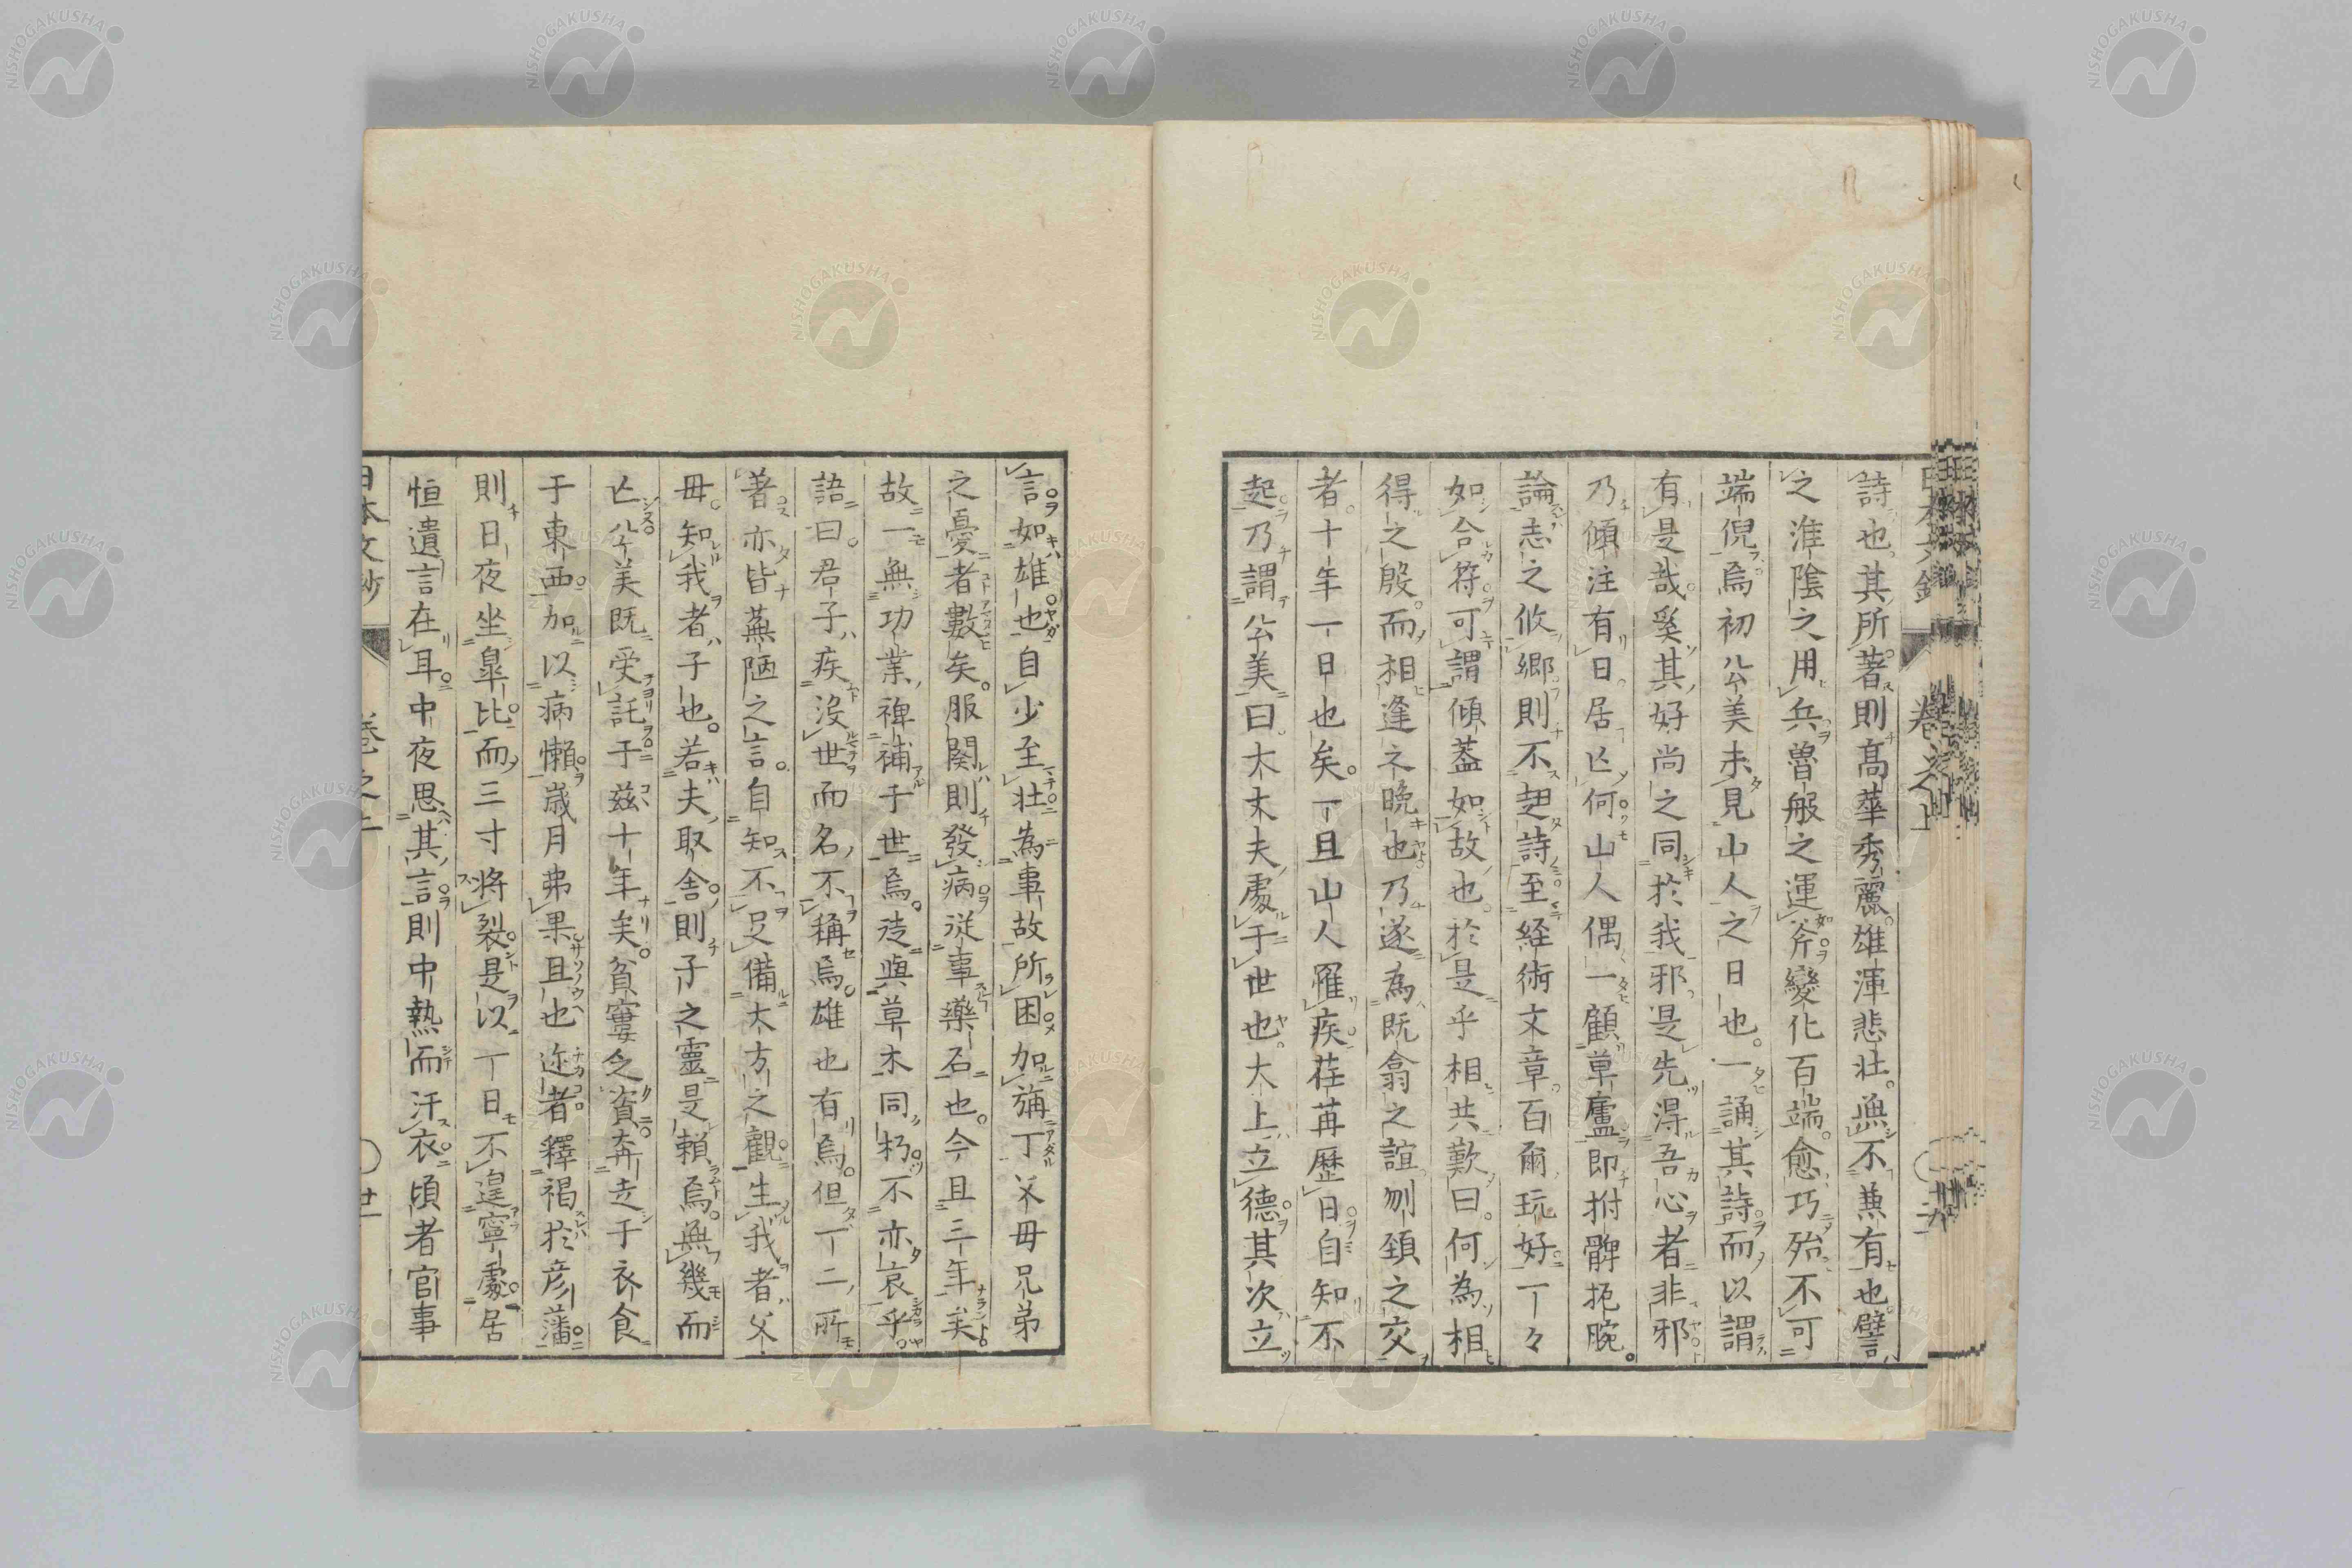 詩也其所著則髙華秀麗雄渾悲壮無不兼有也譬
之淮陰之用兵魯般之運斧變化百端愈巧殆不可
端倪焉初公美未見山人之日也一誦其詩而以謂
有是哉奚其好尚之同於我邪是先得吾心者非邪
乃傾注有日居亾何山人偶一顧草廬即拊髀扼腕
論志之攸郷則不翅詩至経術文章百爾玩好一々
如合符可謂傾蓋如故也於是乎相共歎曰何為相
得之殷而相逢之晩也乃遂為既翕之誼刎頚之交
者十年一日也矣一且山人罹疾荏苒歴日自知不
起乃謂公美曰大丈夫處于世也大上立德其次立
言如雄也自少至壮為事故所困加旃丁父母兄弟
之憂者數矣服闋則發病従事藥石也今且三年矣
故一無功業禆補于世焉徒與草木同朽不亦哀乎
語曰君子疾没世而名不稱焉雄也有焉但一二所
著亦皆蕪陋之言自知不足備大方之觀生我者父
毋知我者子也若夫取舎則子之靈是頼焉無幾而
亾公美既受託于兹十年矣貧窶乏資奔走于衣食
于東西加以病懶歳月弗果且也迩者釋褐於彦藩
則日夜坐臯比而三寸將裂是以一日不遑寧處居
恒遺言在耳中夜思其言則中熱而汗衣頃者官事
日本文鈔
卷之上
NISHOGAKUSHA